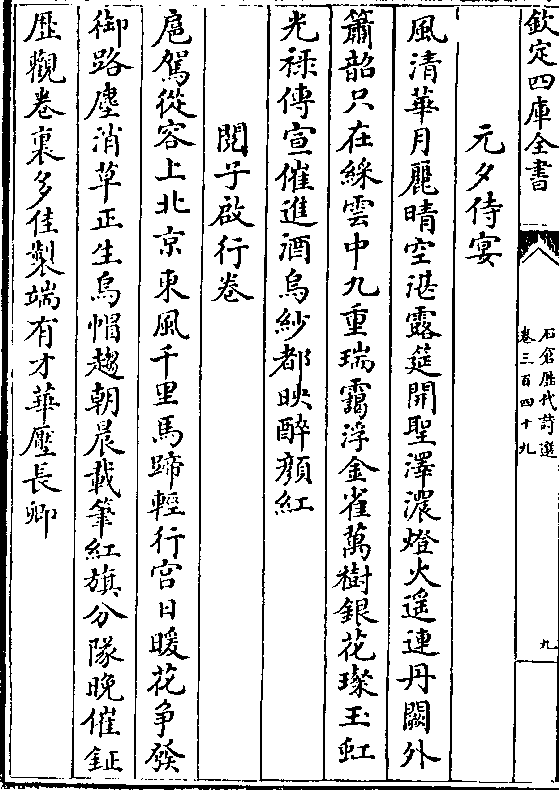 欽定四庫全書
石倉歷代詩選
卷三百四十九
九
元夕侍宴
風清華月麗晴空湛露筵開聖澤濃燈火遥連丹闕外
簫韶只在綵雲中九重瑞靄浮金雀萬樹銀花璨玉虹
光禄傳宣催進酒烏紗都映醉顔紅
閲子啟行卷
扈駕從容上北京東風千里馬蹄輕行宫日暖花争發
御路塵消草正生烏帽趨朝晨載筆紅旗分隊晚催鉦
歷觀卷裏多佳製端有才華壓長卿